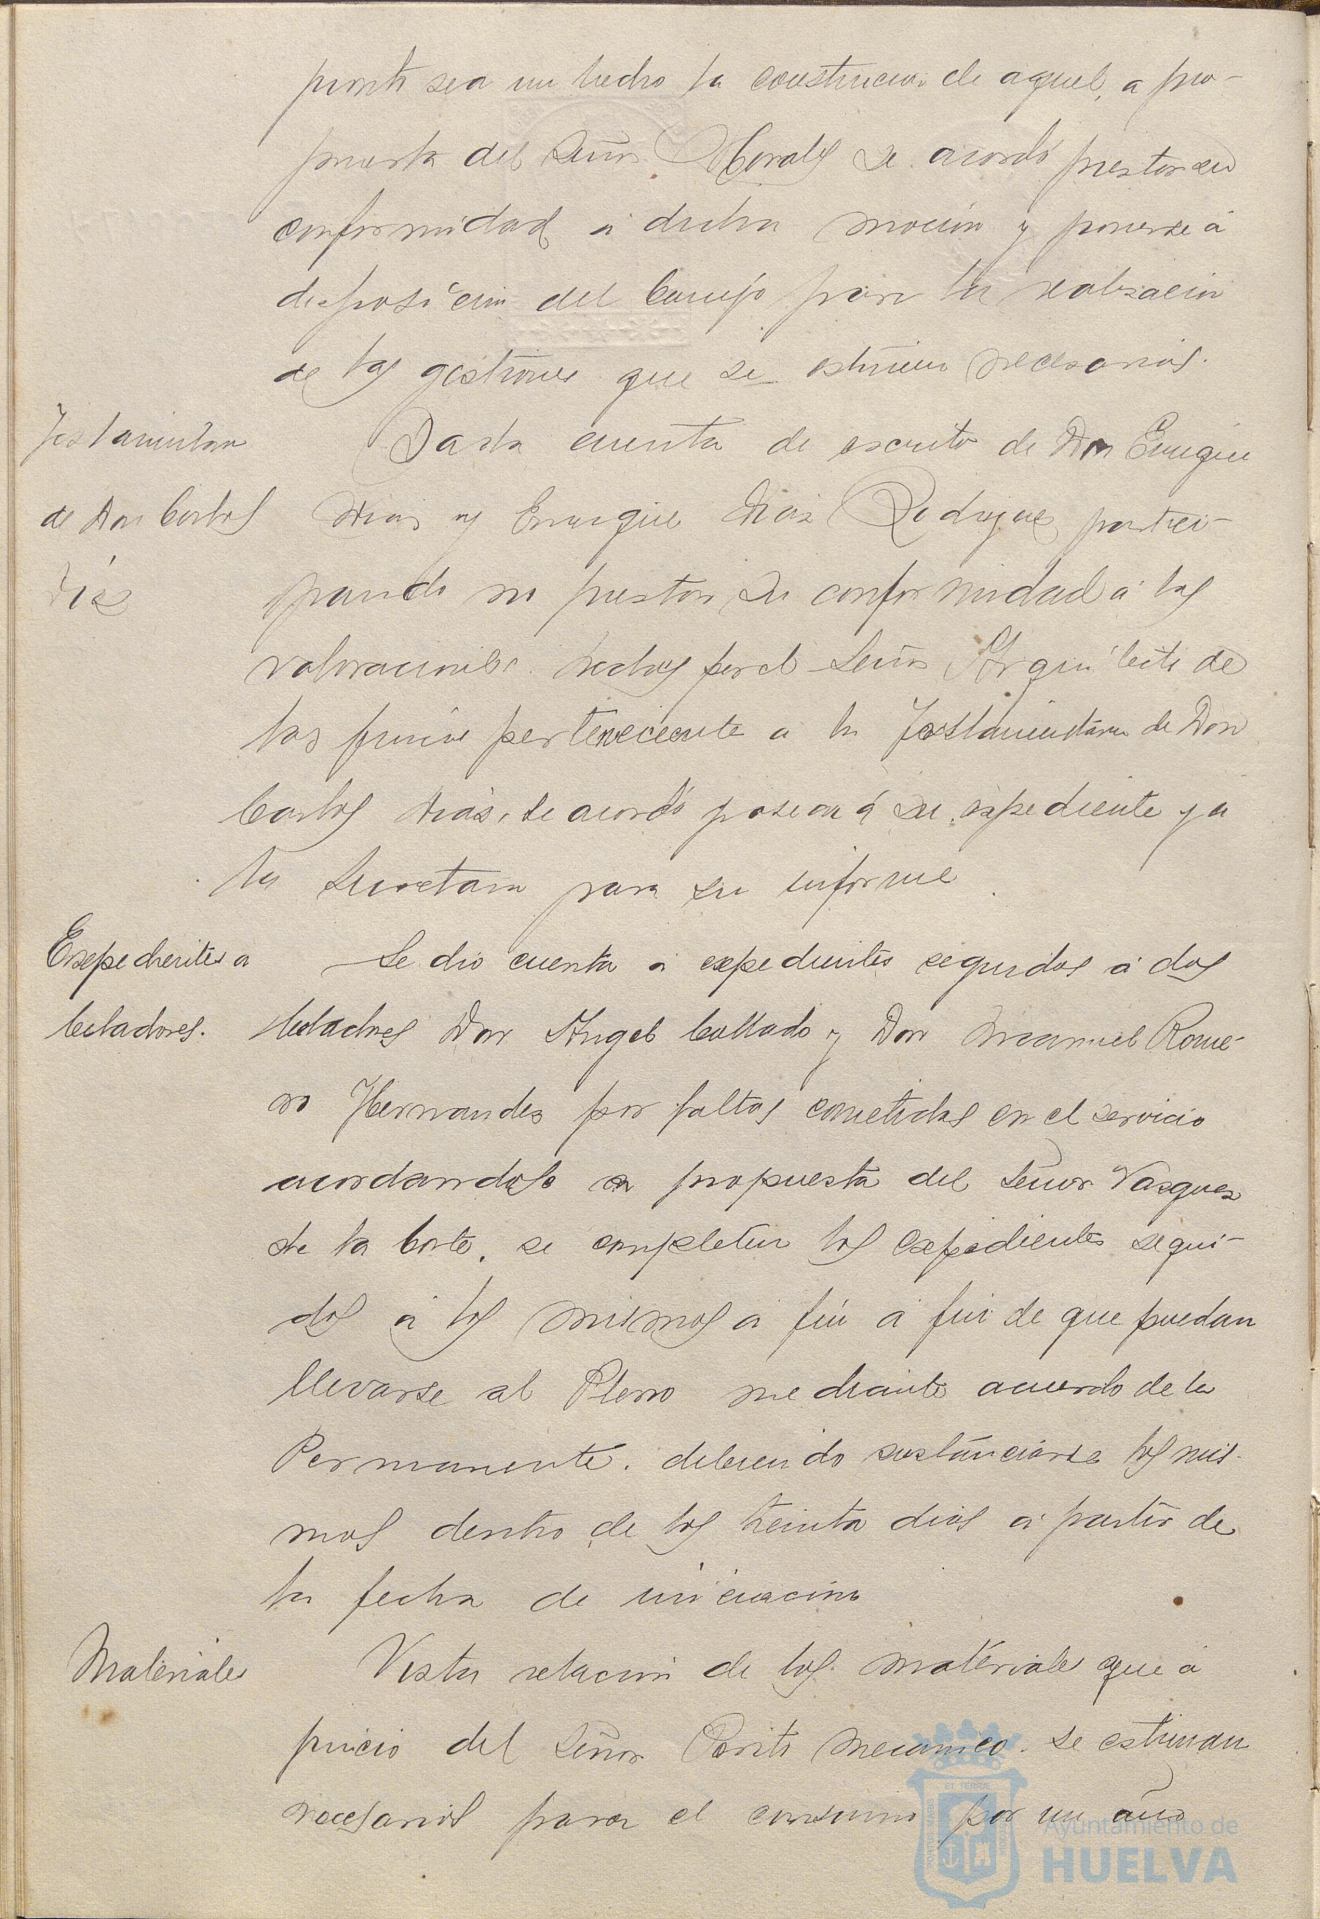 pronto sea un hecho la construccion de aquel, a pro-
puesta del Señor Morales se acordó prestar su
conformidad á dicha moción y ponerse á
disposición del Consejo para la realización
de las gestiones que se estimen necesarias.
Testamentaria
de Don Carlos
Díaz
Dada cuenta de escrito de Don Enrique
Díaz y Enrique Díaz Rodriguez partici-
pando no prestar su conformidad á las
valoraciones hechas por el Señor Arquitecto de
las fincas perteneciente a la Testamentaria de Don
Carlos Díaz, se acordó pasara á su expediente y a
la Secretaria para su informe
Expedientes a
Celadores.
Se dio cuenta a expedientes seguidos á dos
Celadores Don Angel Collado y Don Manuel Rome-
ro Hernandez por faltas cometidas en el servicio
acordandose a propuesta del Señor Vazquez
de la Corte, se completen los expedientes segui-
dos á los mismos a fin a fin de que puedan
llevarse al Pleno mediante acuerdo de la
Permanente, debiendo sustanciarse los mis-
mos dentro de los treinta dias a partir de
la fecha de iniciación
Materiales
Vista relación de los materiales que á
juicio del Señor Perito mecanico se estiman
necesarios para el consumo por un año
Ayuntamiento de
HUELVA